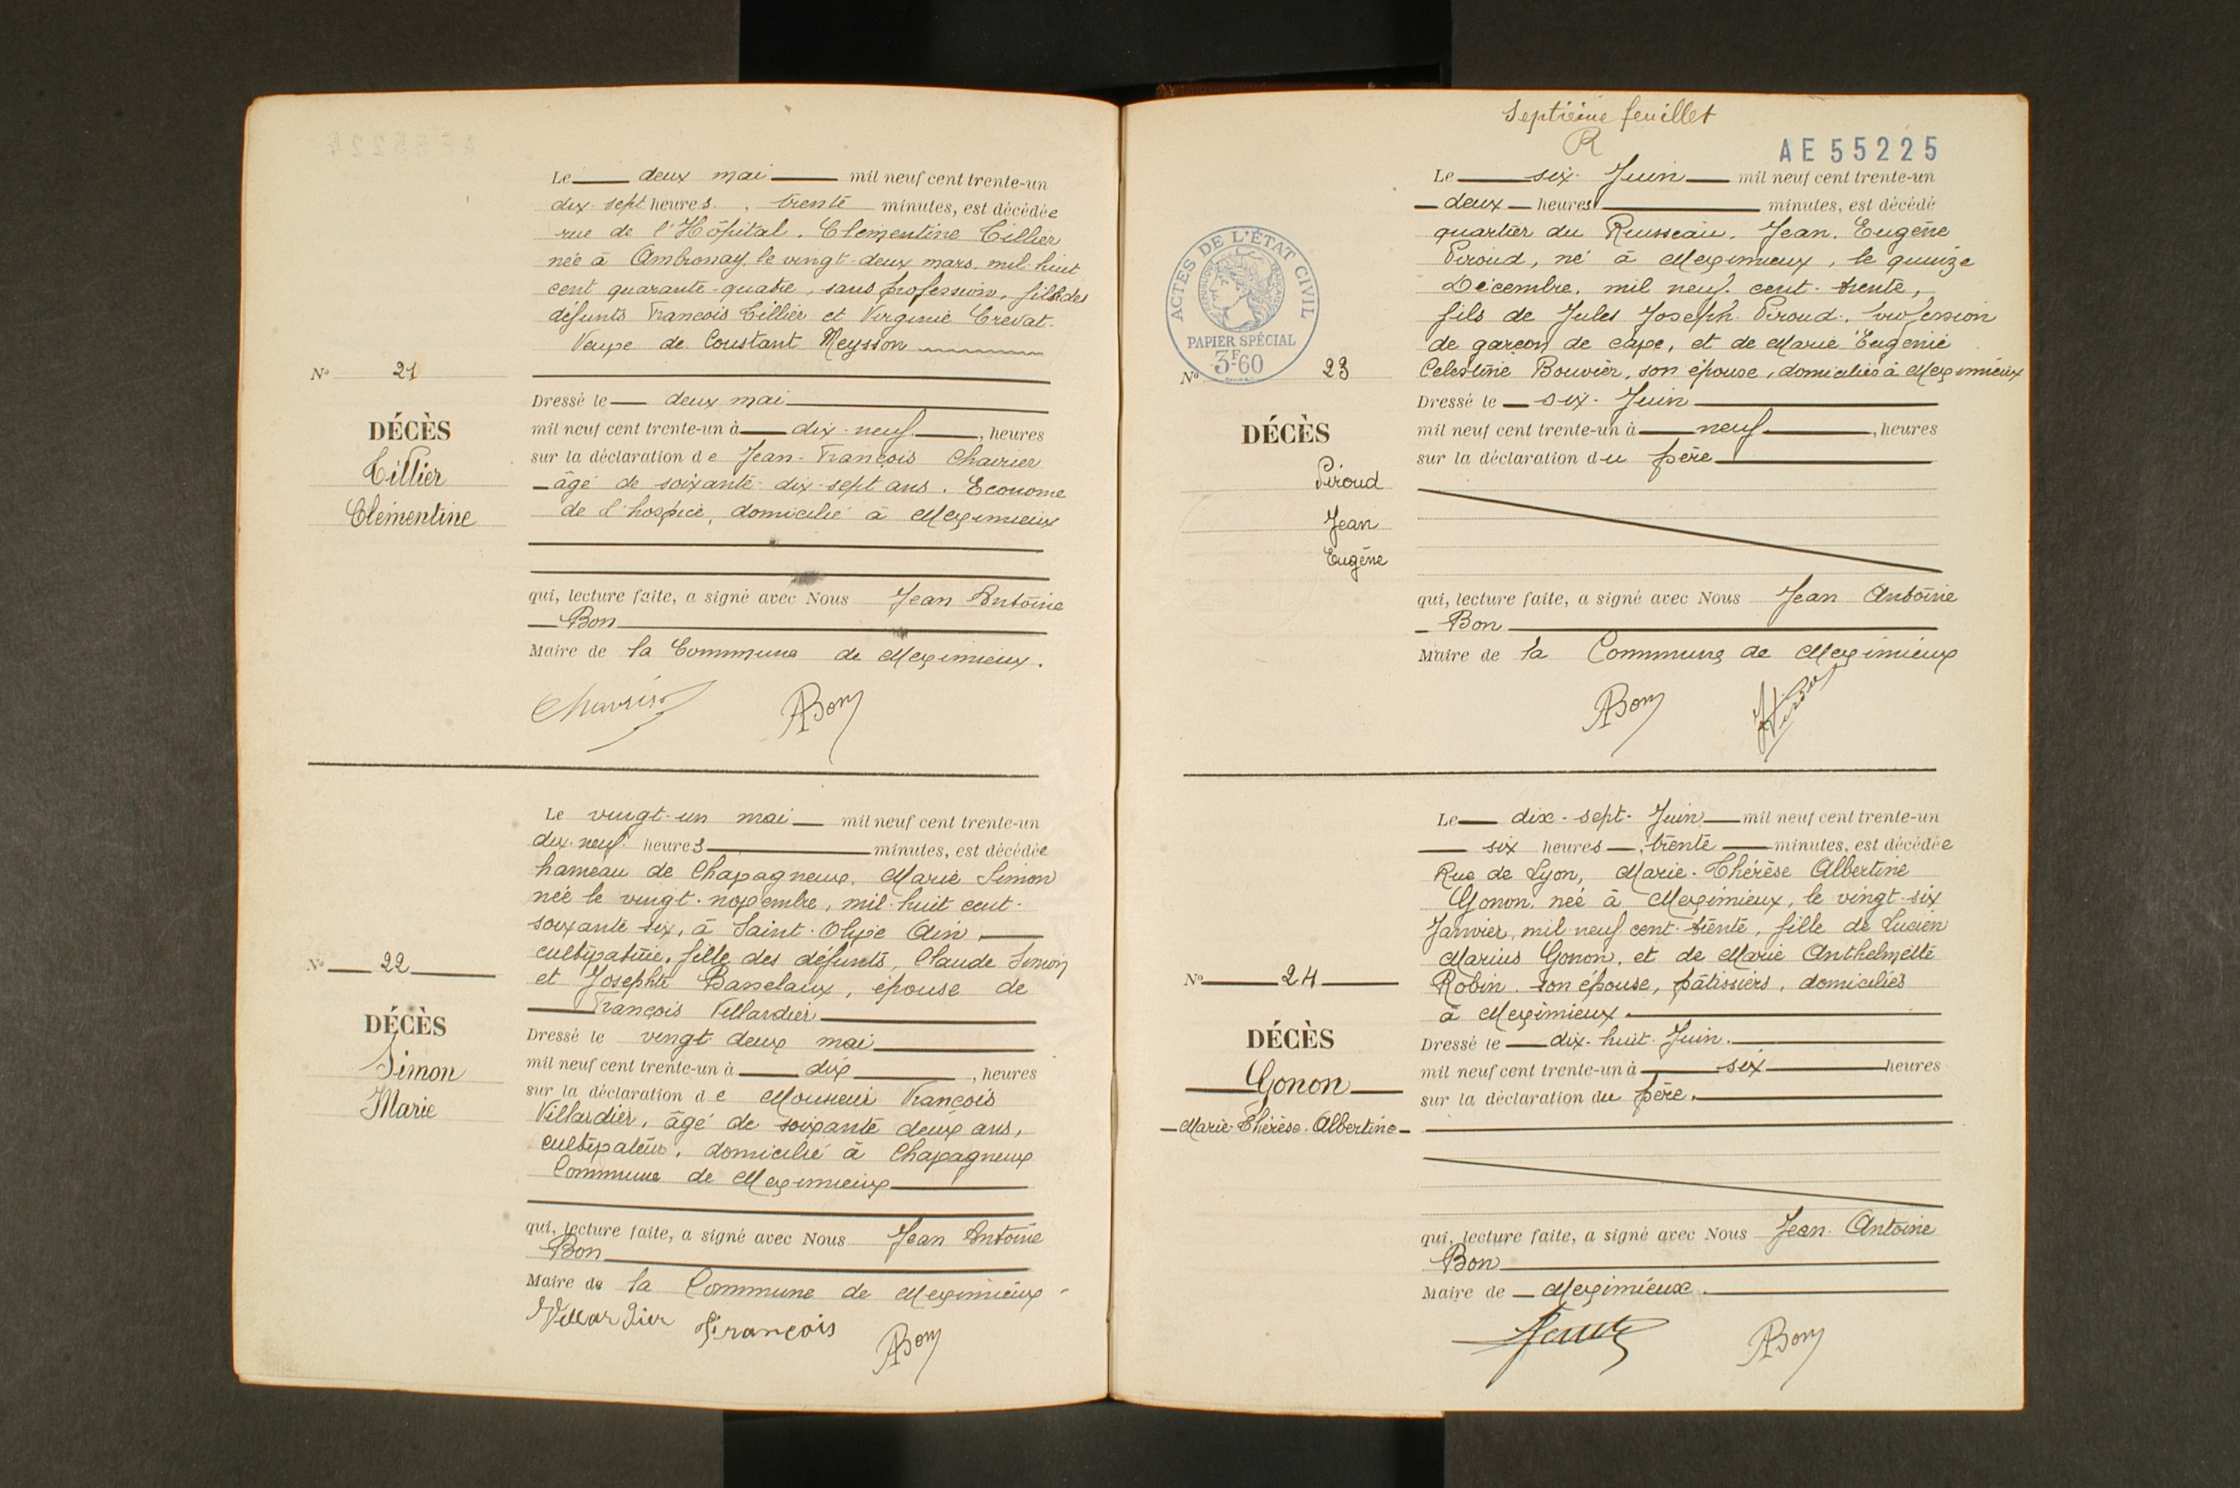 Le deux mai mil neuf cent trente-un
dix-sept heures, trente minutes, est décédée
rue de l'Hôpital, Clementine Tillier
née à Ambronay, le vingt-deux mars, mil huit
cent quarante-quatre, sans profession, fille des
défunts Francois Tillier et Virginie Crevat.
Veuve de Constant Meysson
Nº 21
DÉCÈS
Tillier
Clémentine
Dressé le deux mai
mil neuf cent trente-un à dix-neuf, heures
sur la déclaration de Jean-François Chavrier
âgé de soixante-dix-sept ans. Econome
de l'hospice, domicilié à Meximieux
qui, lecture faite, a signé avec Nous Jean Antoine
Bon
Maire de la Commune de Meximieux.
Chavrier ABon
Le vingt-un mai mil neuf cent trente-un
dix-neuf heures minutes, est décédée
hameau de Chavagneux, Marie Simon
née le vingt-novembre, mil-huit cent-
soixante six, à Saint-Olive Ain,
cultivatrice, fille des défunts, Claude Simon
et Josephte Banclaux, épouse de
François Villardier
Nº 22
DÉCÈS
Simon
Marie
Dressé le vingt deux mai
mil neuf cent trente-un à dix, heures
sur la déclaration de Monsieur François
Villardier, âgé de soixante deux ans,
cultivateur, domicilié à Chavagneux
Commune de Meximieux
qui, lecture faite, a signé avec Nous Jean Antoine
Bon
Maire de la Commune de Meximieux
Villardier François ABon
Septième feuillet
R
AE55225
Le six Juin mil neuf cent trente-un
deux heures minutes, est décédé
quartier du Ruisseau, Jean, Eugène
Piroud, né à Meximieux, le quinze
Décembre, mil neuf cent-trente,
fils de Jules Joseph Piroud, profession
de garçon de cave, et de Marie Eugénie
Celestine Bouvier, son épouse, domiciliés à Meximieux
ACTES DE L'ÉTAT CIVIL
RÉPUBLIQUE FRANÇAISE
PAPIER SPÉCIAL
3F60
Nº 23
DÉCÈS
Piroud
Jean
Eugène
Dressé le six-Juin
mil neuf cent trente-un à neuf, heures
sur la déclaration du père
qui, lecture faite, a signé avec Nous Jean Antoine
Bon
Maire de la Commune de Meximieux
ABon JPiroud
Le dix-sept-Juin mil neuf cent trente-un
six heures, trente minutes, est décédée
Rue de Lyon, Marie-Thérèse Albertine
Gonon, née à Meximieux, le vingt-six
Janvier, mil-neuf cent-trente, fille de Lucien
Marius Gonon, et de Marie Anthelmette
Robin, son épouse, pâtissiers, domiciliés
à Meximieux.
Nº 24
DÉCÈS
Gonon
Marie-Thérèse-Albertine
Dressé le dix-huit-Juin.
mil neuf cent trente-un à six heures
sur la déclaration du père.
qui, lecture faite, a signé avec Nous Jean-Antoine
Bon
Maire de Meximieux.
ABon